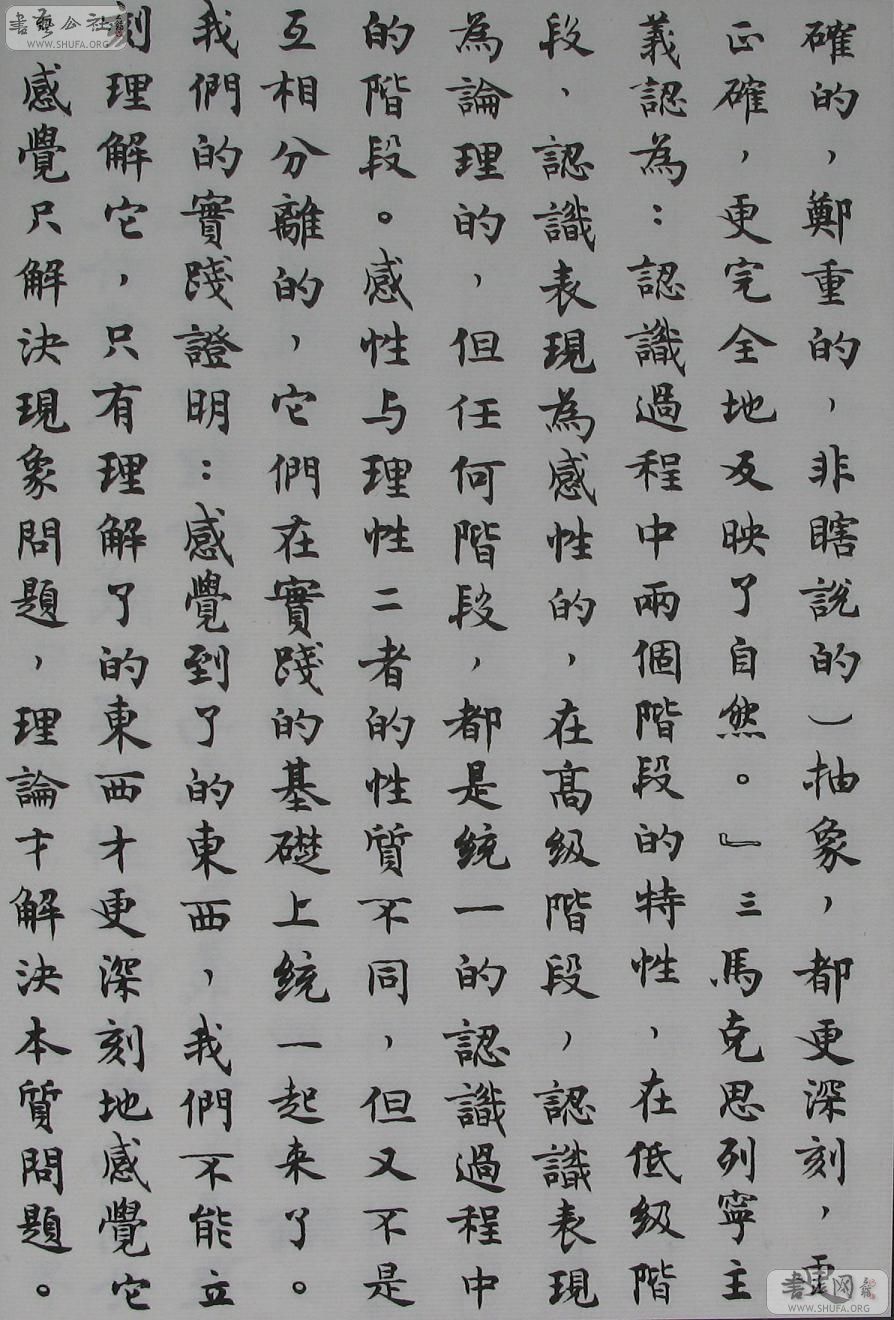 確的，鄭重的，非瞎說的）抽象，都更深刻，更
正確，更完全地反映了自然。』三馬克思列寧主
義認為：認識過程中兩個階段的特性，在低級階
段，認識表現為感性的，在高級階段，認識表現
為論理的，但任何階段，都是統一的認識過程中
的階段。感性与理性二者的性質不同，但又不是
互相分離的，它們在實踐的基礎上統一起来了。
我們的實踐證明：感覺到了的東西，我們不能立
刻理解它，只有理解了的東西才更深刻地感覺它
感覺只解決現象問題，理論才解決本質問題。
書藝公社
WWW.SHUFA.ORG
書网
WWW.SHUFA.ORG